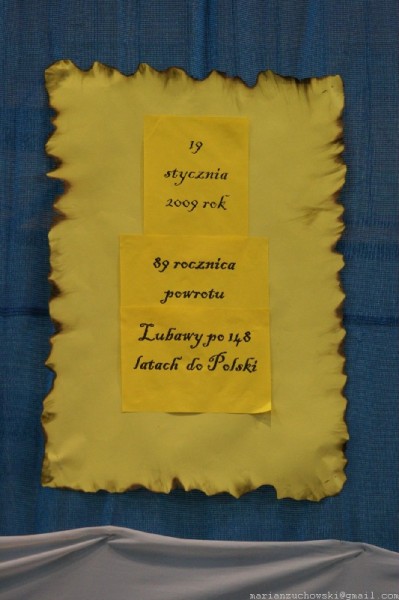 19
stycznia
2009 rok
89 rocznica
powrotu
Lubawy po 148
latach do Polski
marianzuchowski@gmail.com